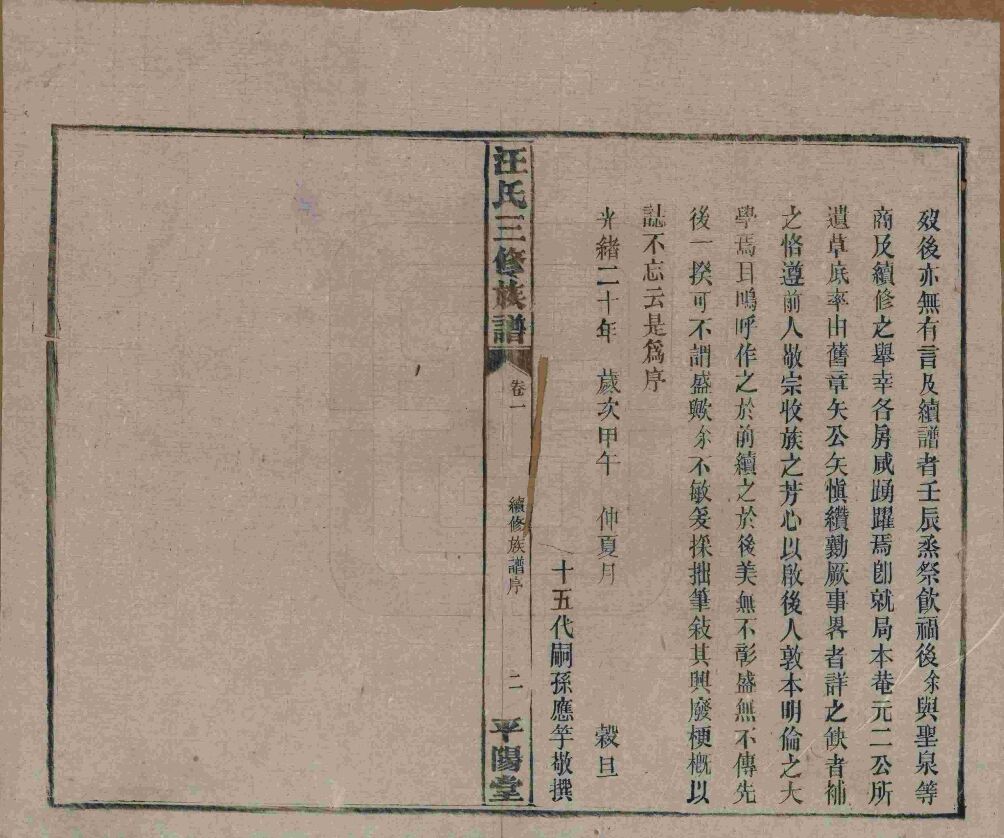 歿後亦無有言及續譜者壬辰烝祭飲福後余與聖泉等
商及續修之舉幸各房咸踴躍焉卽就局本菴元二公所
遺草底率由舊章矢公矢愼纘勷厥事畧者詳之缺者補
之恪遵前人敬宗收族之芳心以啟後人敦本明倫之大
學焉耳嗚呼作之於前續之於後美無不彰盛無不傳先
後一揆可不謂盛歟余不敏爰採拙筆敍其興廢梗槪以
誌不忘云是爲序
光緒二十年 歲次甲午 仲夏月 穀旦
十五代嗣孫應竽敬撰
汪氏三修族譜 卷一 續修族譜序 二 平陽堂